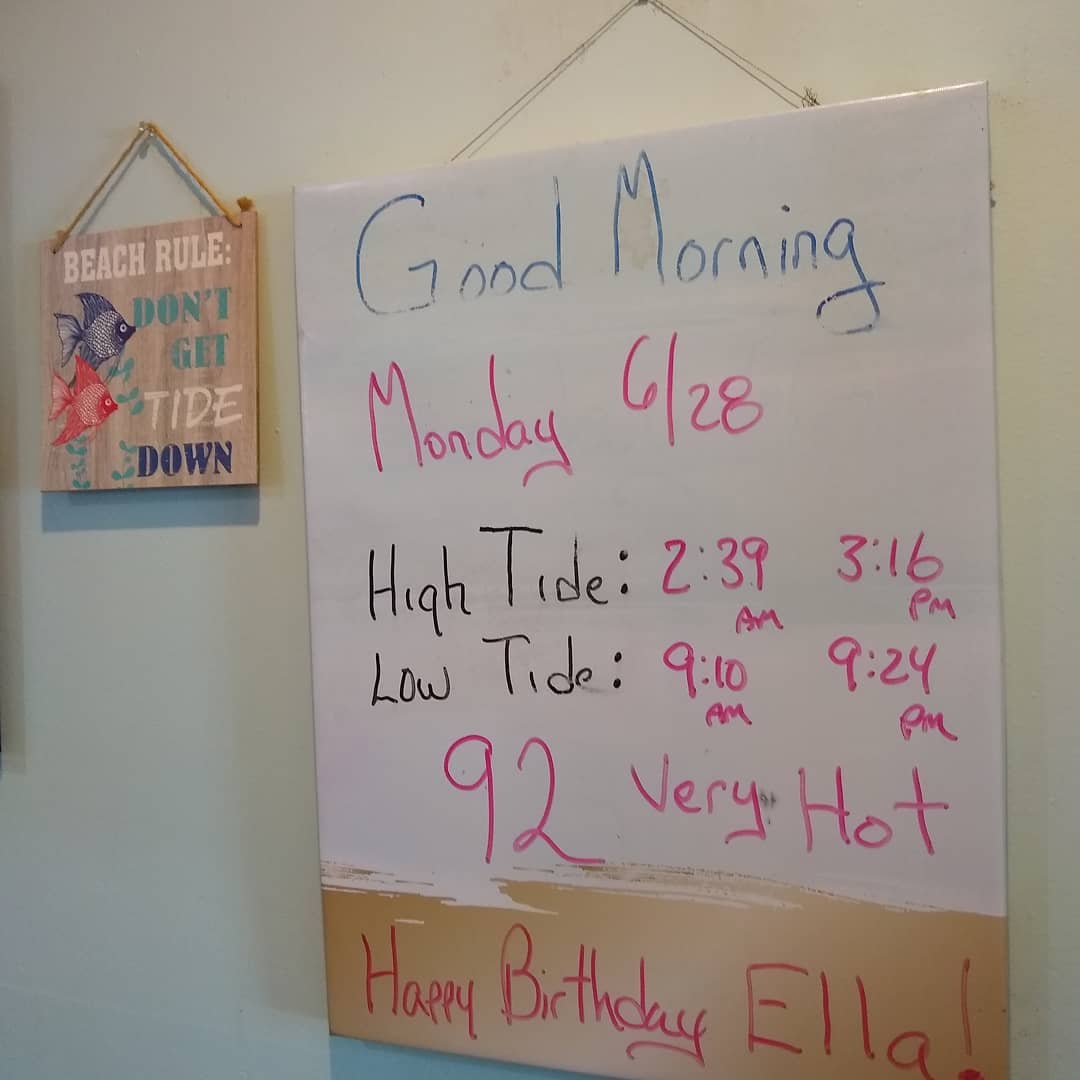 BEACH RULE:
DON'T
GET
TIDE
DOWN
Good Morning
Monday 6/28
High Tide: 2:39 AM 3:16 PM
Low Tide: 9:10 AM 9:24 PM
92 Very Hot
Happy Birthday Ella!